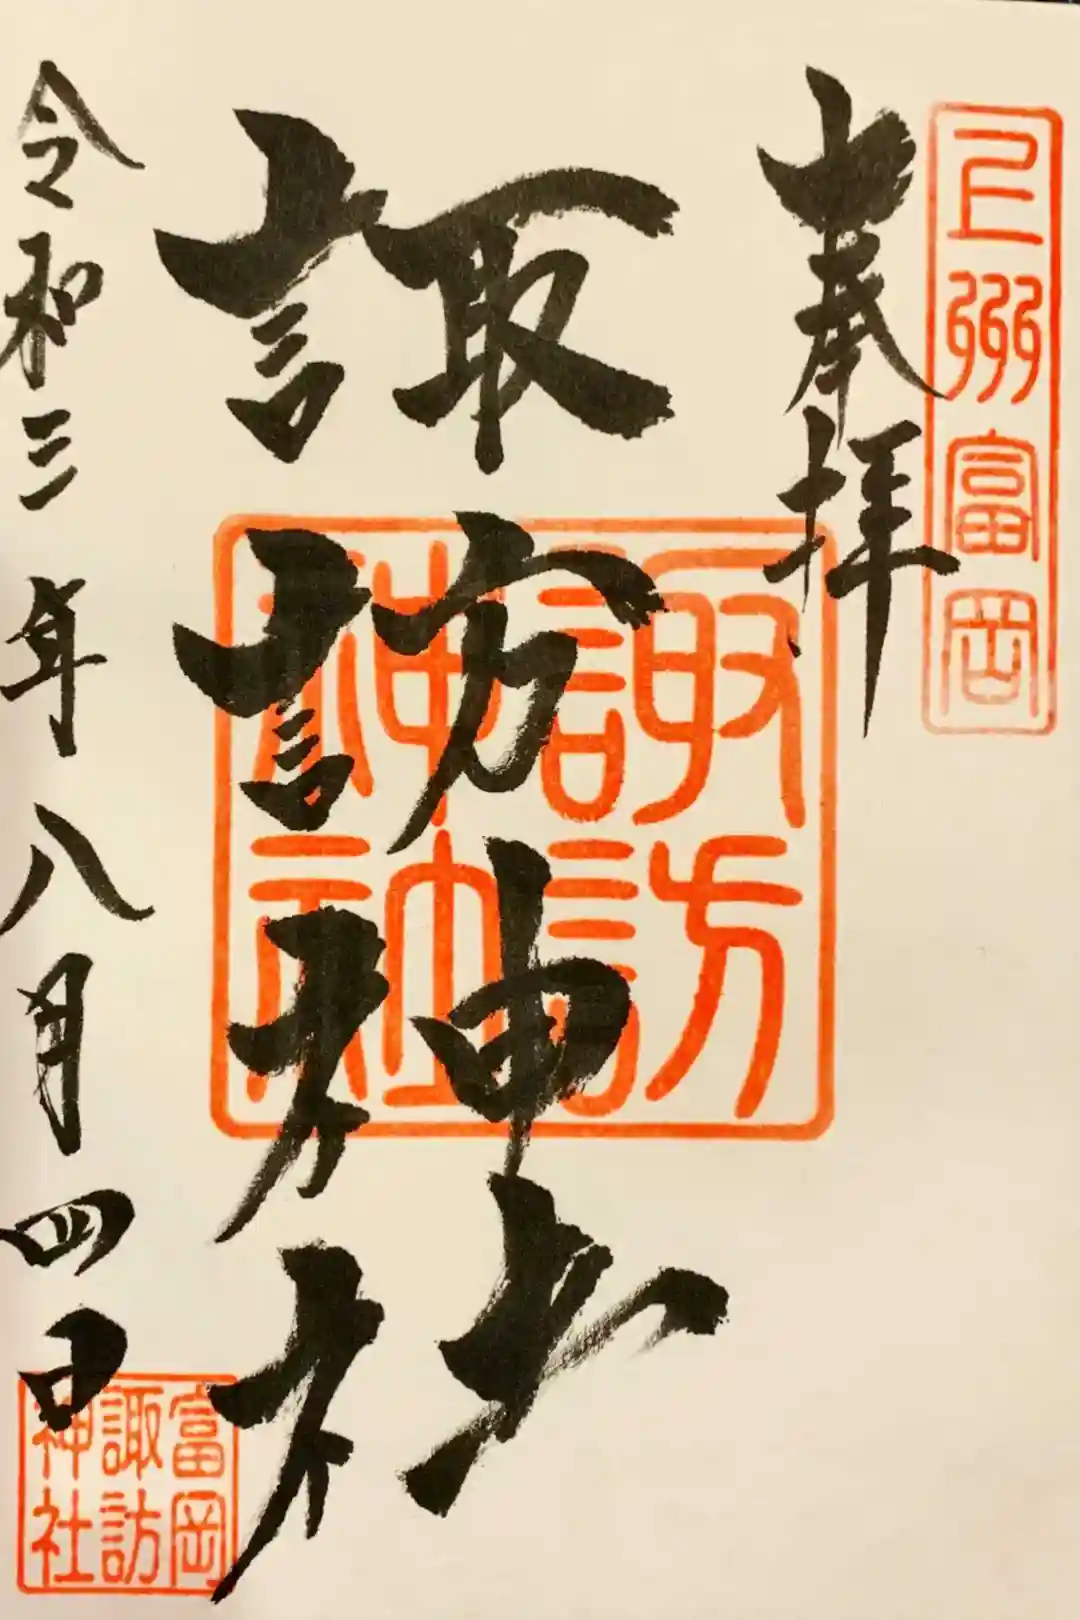 上州富岡
奉拝
諏訪神社
諏訪
神社
令和三年八月四日
富岡
諏訪
神社